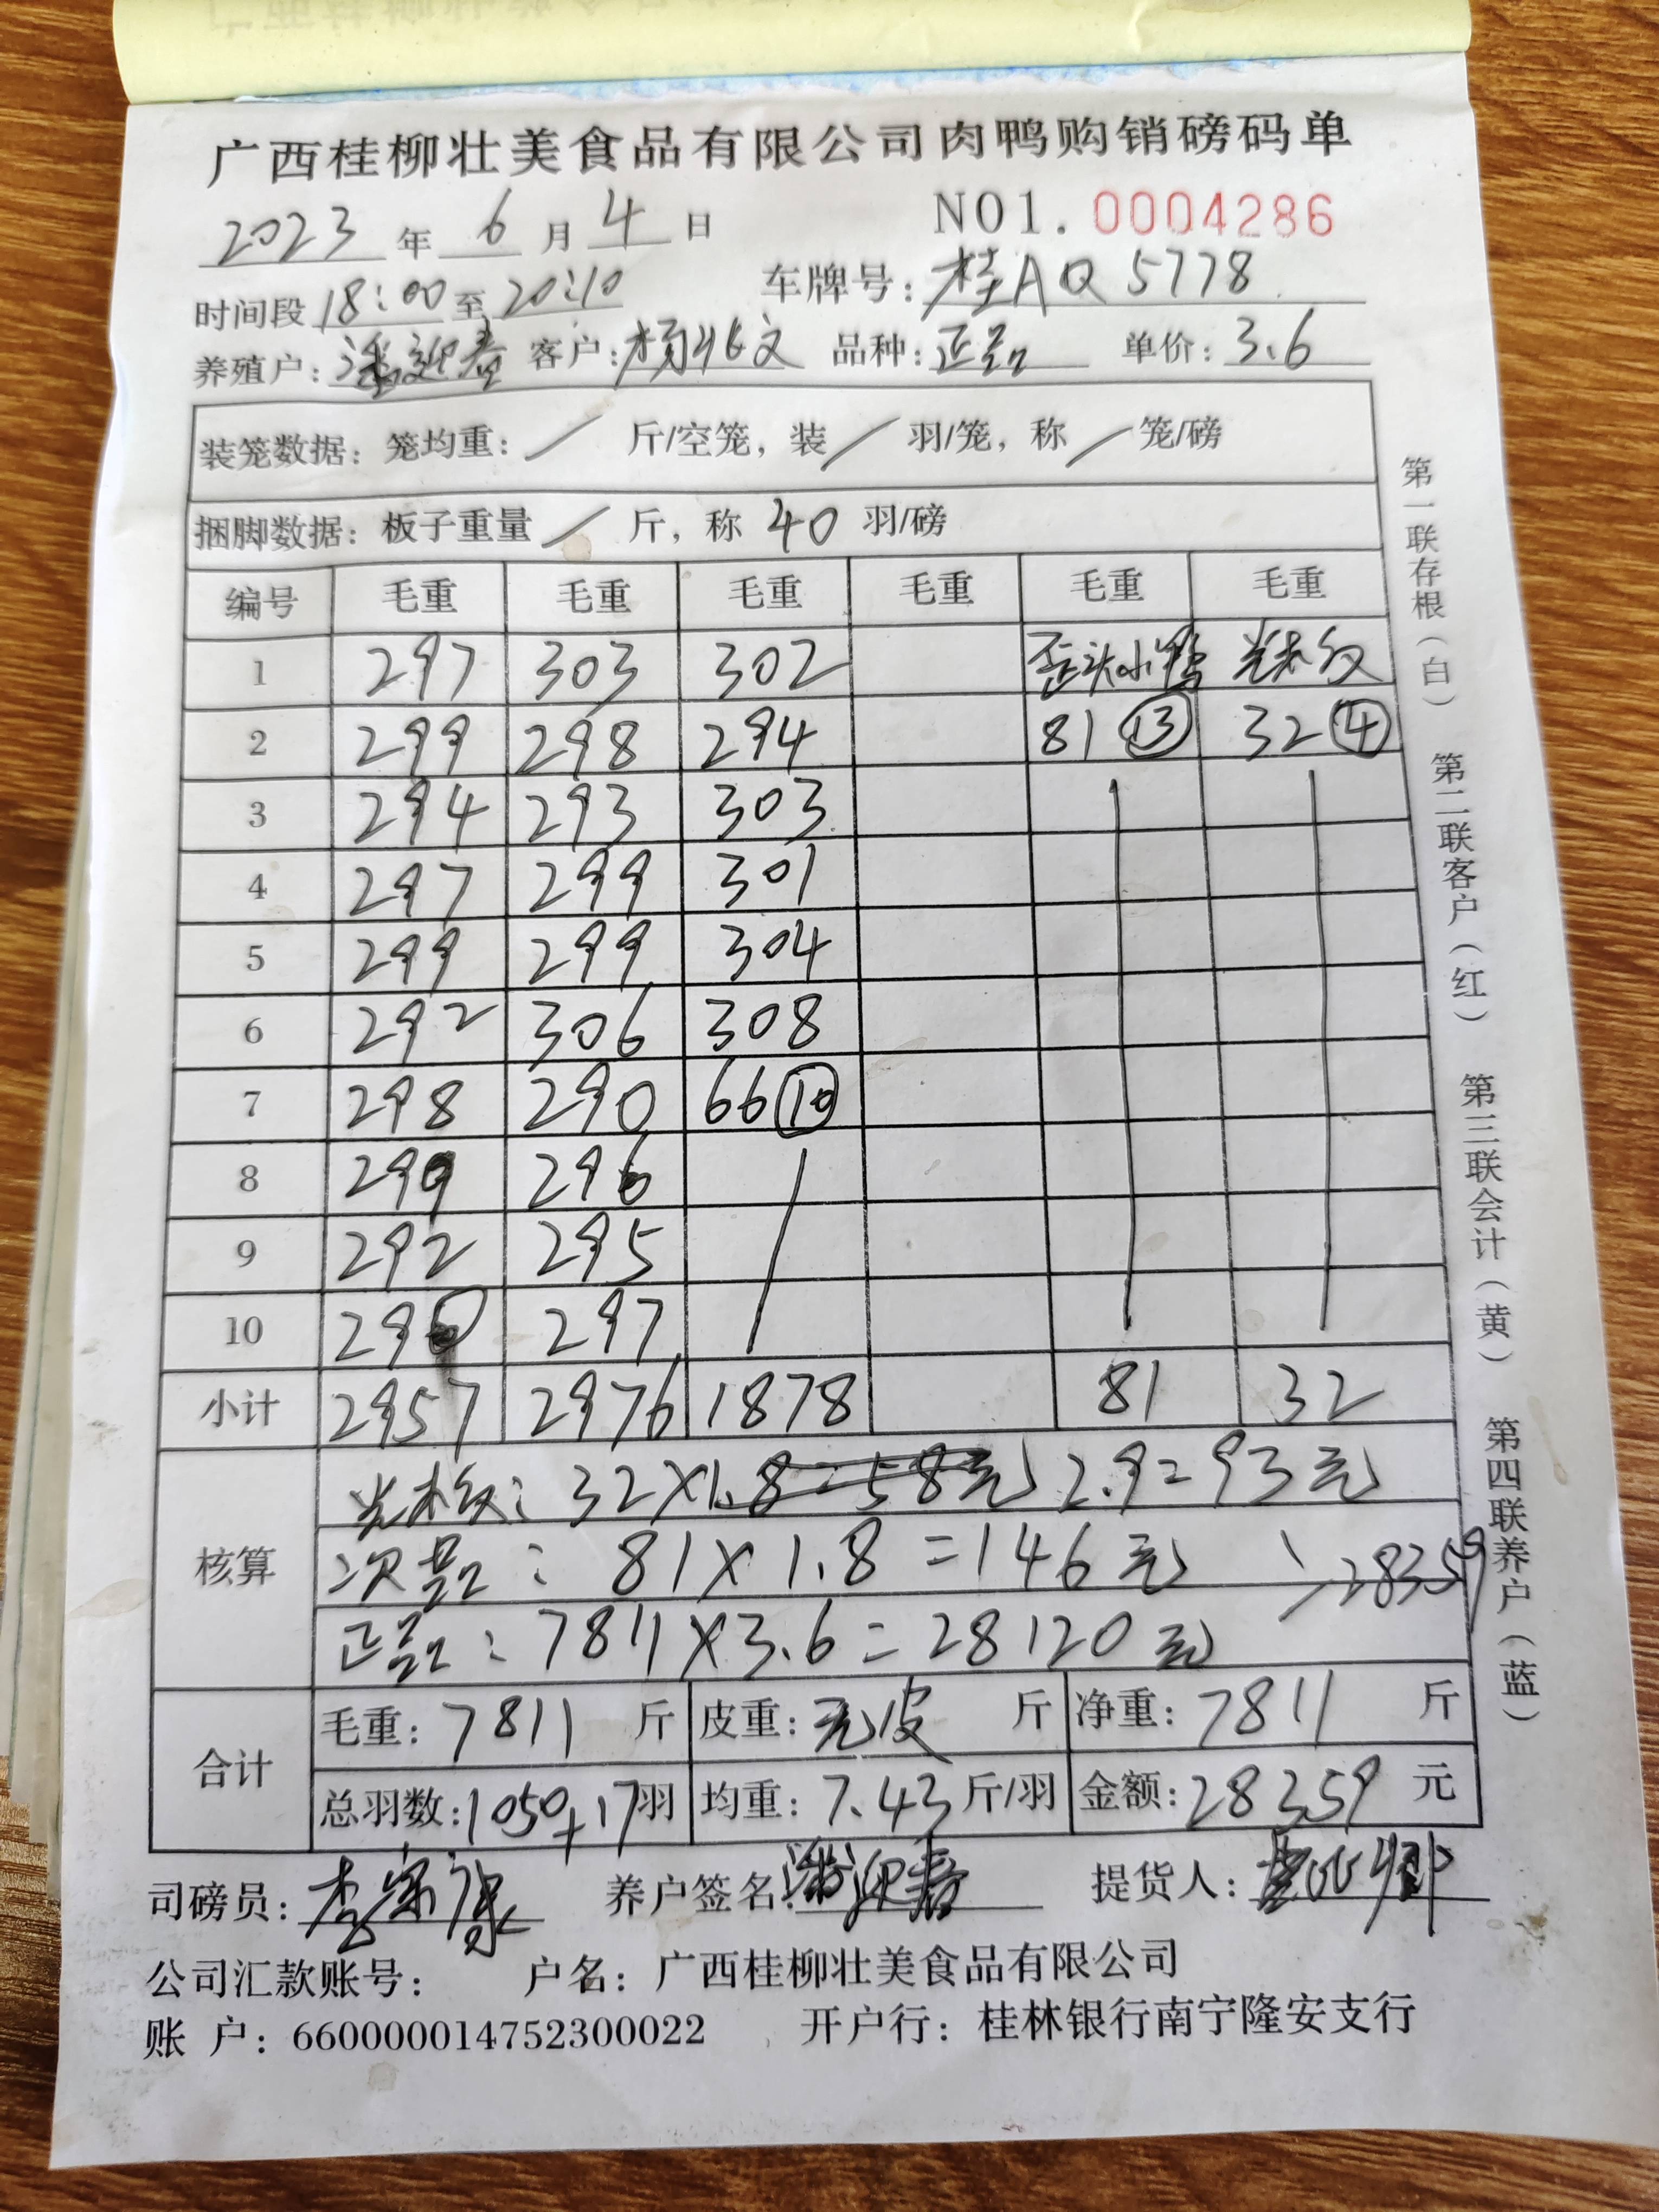 广西桂柳壮美食品有限公司肉鸭购销磅码单
2023 年 6 月 4 日 NO1. 0004286
时间段 18:00 至 20:10 车牌号: 桂AQ5778
养殖户: 潘迎春 客户: 杨兆文 品种: 正品 单价: 3.6
装笼数据: 笼均重: / 斤/空笼, 装 / 羽/笼, 称 / 笼/磅
捆脚数据: 板子重量 / 斤, 称 40 羽/磅
编号 毛重 毛重 毛重 毛重 毛重 毛重
1 297 303 302 歪头小鸭
2 299 298 294 81 ⑬ 32 ④
3 294 293 303
4 297 299 301
5 299 299 304
6 292 306 308
7 298 290 66 ⑩
8 299 296
9 292 295
10 290 297
小计 2957 2976 1878 81 32
32×1.8=58元 2.9=93元
核算 次品: 81×1.8=146元 28359
正品: 7811×3.6=28120元
合计 毛重: 7811 斤 皮重: 无皮 斤 净重: 7811 斤
总羽数: 1050+17 羽 均重: 7.43 斤/羽 金额: 28359 元
司磅员: 养户签名: 潘迎春 提货人:
公司汇款账号: 户名: 广西桂柳壮美食品有限公司
账 户: 660000014752300022 开户行: 桂林银行南宁隆安支行
第一联存根(白) 第二联客户(红) 第三联会计(黄) 第四联养户(蓝)